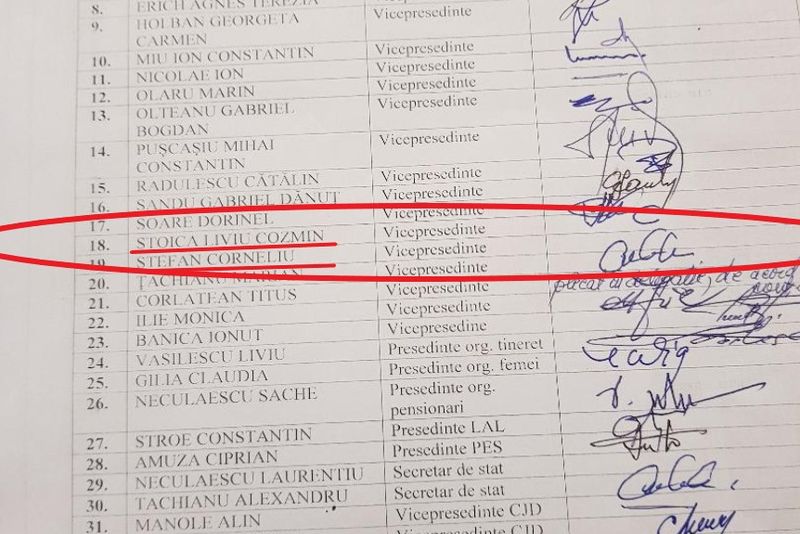 8. ERICH AGNES TEREZIA Vicepresedinte
9. HOLBAN GEORGETA Vicepresedinte
CARMEN
10. MIU ION CONSTANTIN Vicepresedinte
11. NICOLAE ION Vicepresedinte
12. OLARU MARIN Vicepresedinte
13. OLTEANU GABRIEL Vicepresedinte
BOGDAN
14. PUŞCAŞIU MIHAI Vicepresedinte
CONSTANTIN
15. RADULESCU CĂTĂLIN Vicepresedinte
16. SANDU GABRIEL DĂNUŢ Vicepresedinte
17. SOARE DORINEL Vicepresedinte
18. STOICA LIVIU COZMIN Vicepresedinte
19. STEFAN CORNELIU Vicepresedinte
20. ŢACHIANU MARIAN Vicepresedinte
21. CORLATEAN TITUS Vicepresedinte
22. ILIE MONICA Vicepresedinte
23. BANICA IONUT Vicepresedine
24. VASILESCU LIVIU Presedinte org. tineret
25. GILIA CLAUDIA Presedinte org. femei
26. NECULAESCU SACHE Presedinte org.
pensionari
27. STROE CONSTANTIN Presedinte LAL
28. AMUZA CIPRIAN Presedinte PES
29. NECULAESCU LAURENTIU Secretar de stat
30. TACHIANU ALEXANDRU Secretar de stat
31. MANOLE ALIN Vicepresedinte CJD